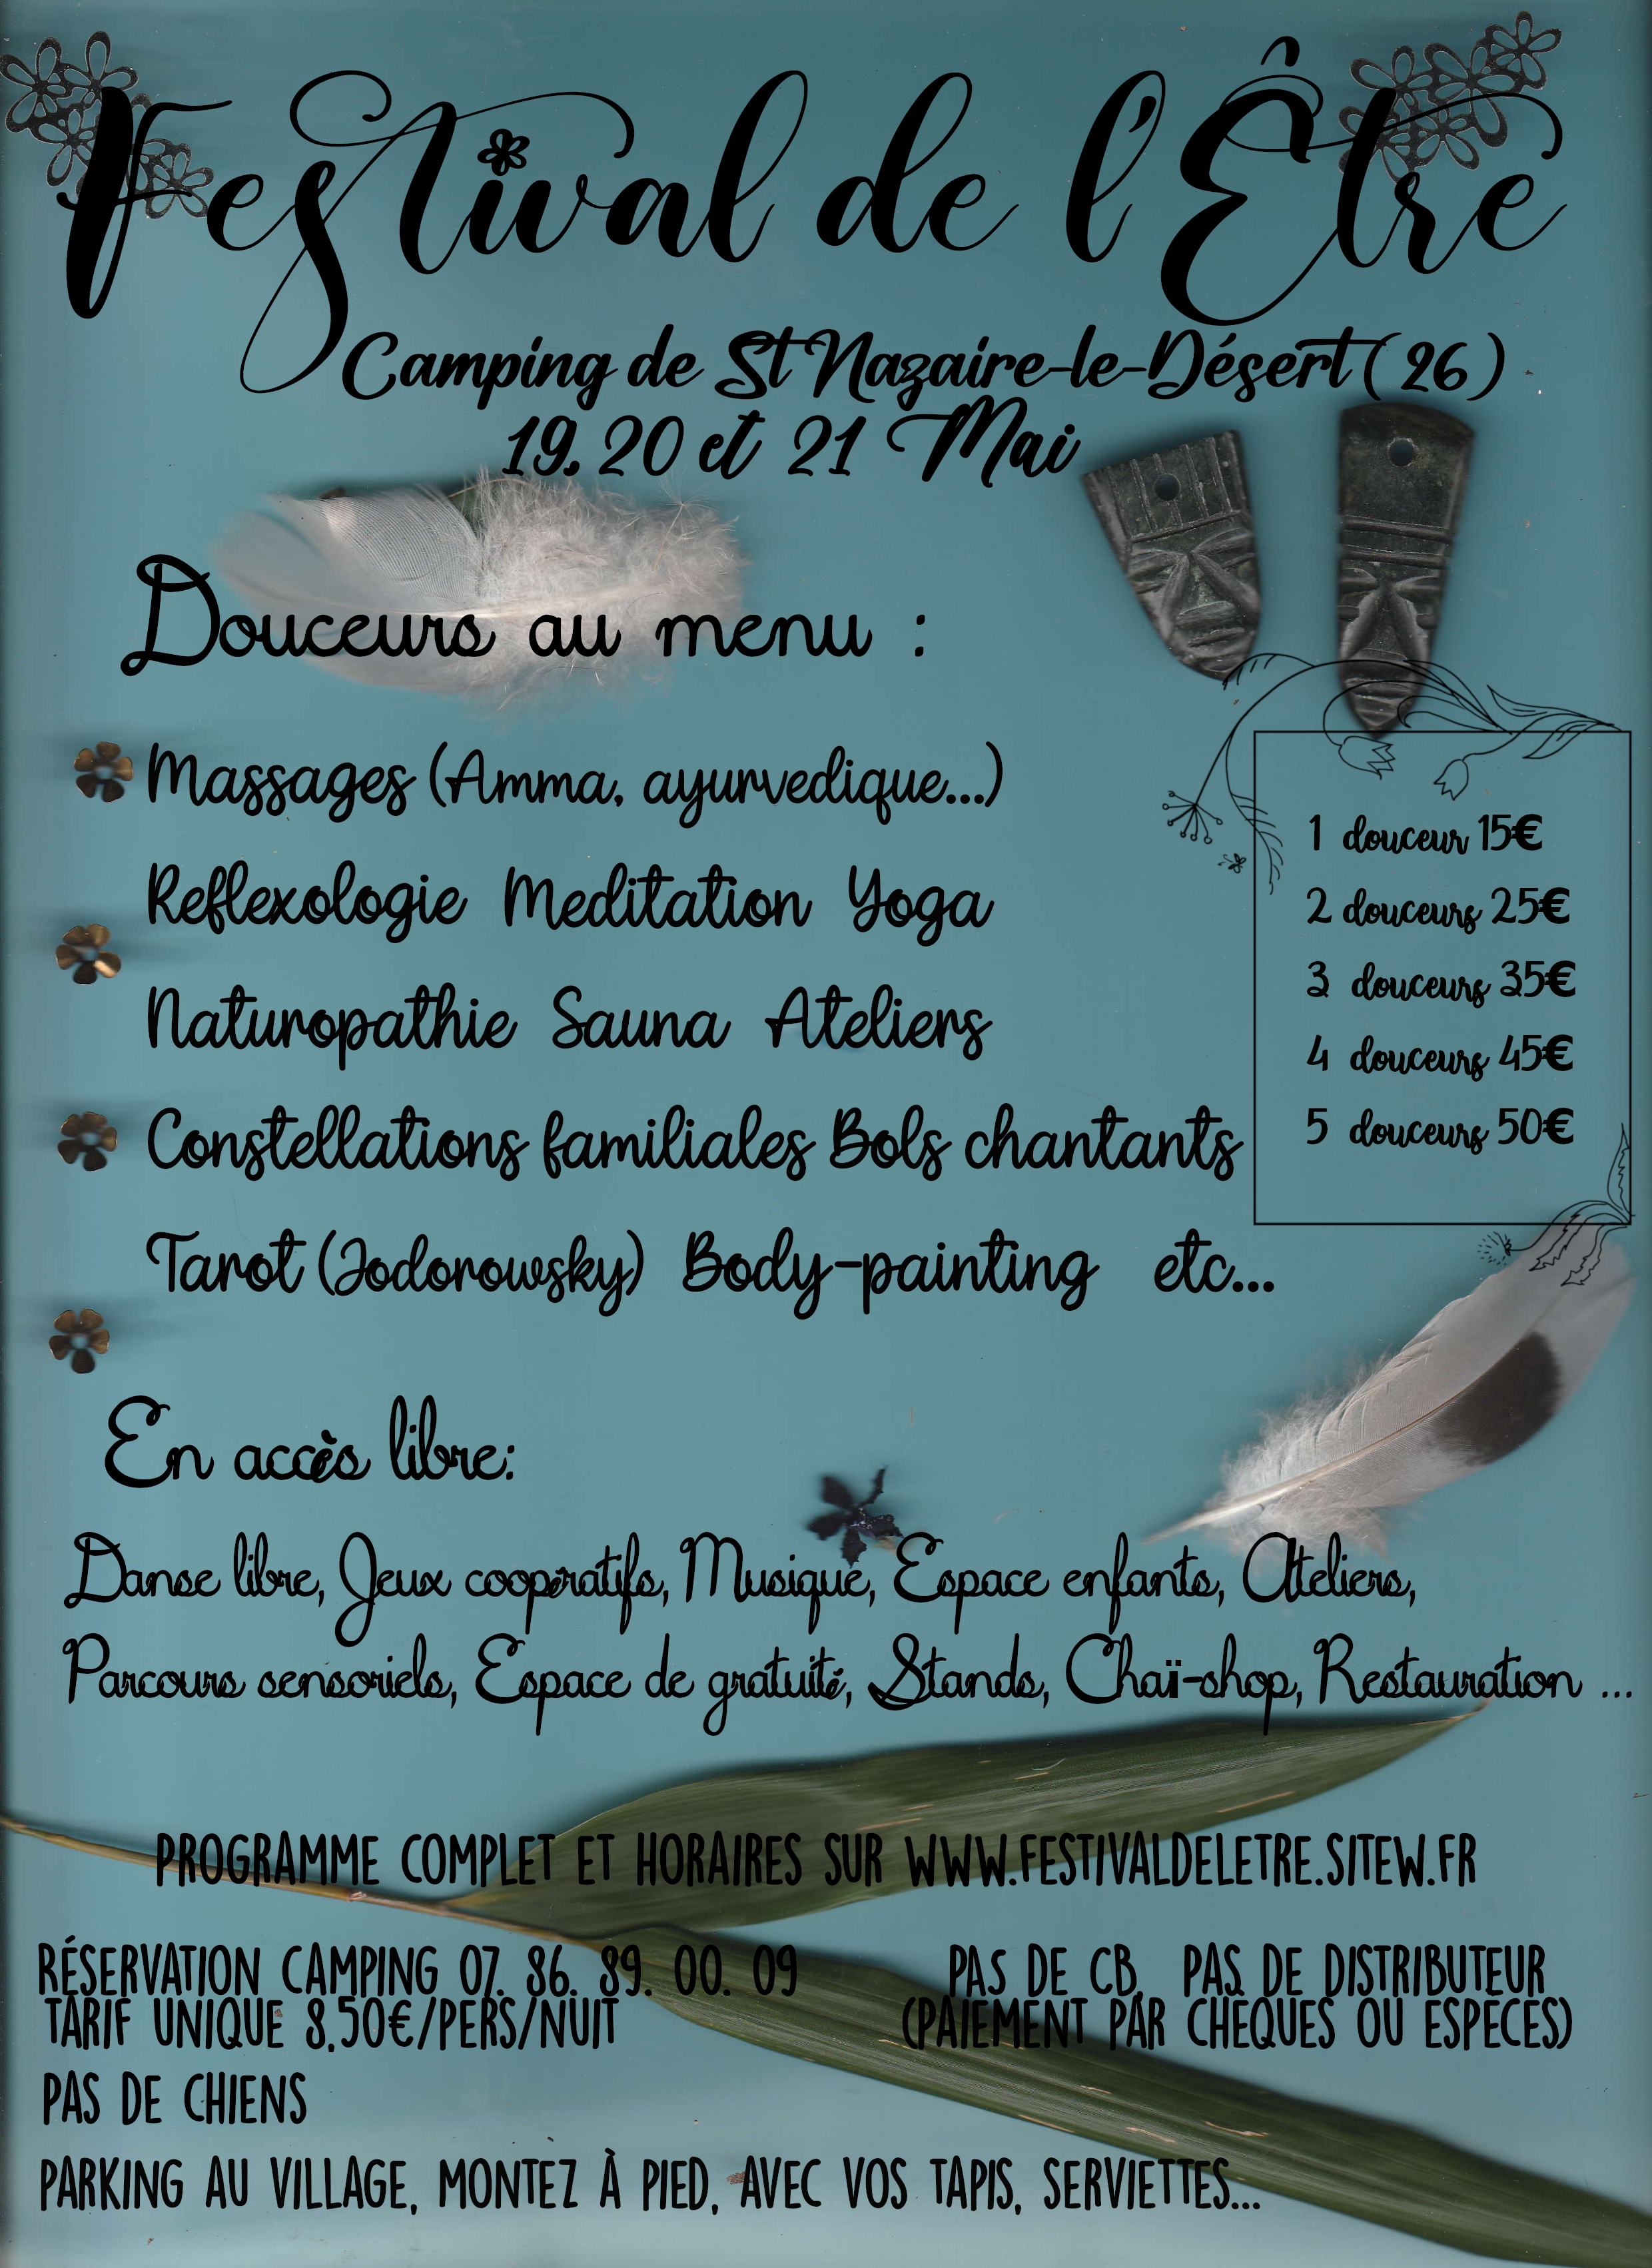 Festival de l'Être
Camping de St Nazaire-le-Désert (26)
19. 20 et 21 Mai
Douceurs au menu :
Massages (Amma, ayurvedique...)
Reflexologie Meditation Yoga
Naturopathie Sauna Ateliers
Constellations familiales Bols chantants
Tarot (Jodorowsky) Body-painting etc...
1 douceur 15€
2 douceurs 25€
3 douceurs 35€
4 douceurs 45€
5 douceurs 50€
En accès libre:
Danse libre, Jeux coopératifs, Musique, Espace enfants, Ateliers,
Parcours sensoriels, Espace de gratuité, Stands, Chaï-shop, Restauration ...
PROGRAMME COMPLET ET HORAIRES SUR WWW.FESTIVALDELETRE.SITEW.FR
RÉSERVATION CAMPING 07. 86. 89. 00. 09
TARIF UNIQUE 8,50€/PERS/NUIT
PAS DE CB, PAS DE DISTRIBUTEUR
(PAIEMENT PAR CHEQUES OU ESPECES)
PAS DE CHIENS
PARKING AU VILLAGE, MONTEZ À PIED, AVEC VOS TAPIS, SERVIETTES...